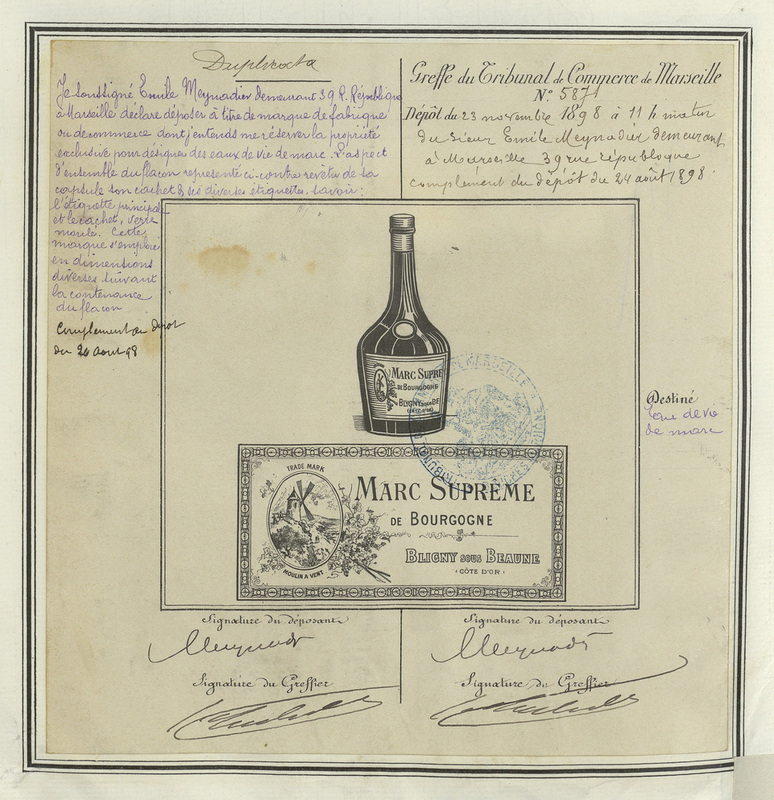 Duplicata
Je soussigné Emile Meynadier demeurant 39 R. République
a Marseille déclare déposer à titre de marque de fabrique
ou de commerce dont j'entends me réserver la propriété
exclusive pour désigner des eaux de vie de marc. L'aspect
d'ensemble du flacon représenté ci-contre revetu de sa
capsule son cachet & ses diverses étiquettes. savoir:
l'étiquette principale
et le cachet, verre
moulé. Cette
marque s'emploie
en dimensions
diverses suivant
la contenance
du flacon
Complement au depot
du 24 Aout 98
Greffe du Tribunal de Commerce de Marseille
N° 5871
Dépôt du 23 novembre 1898 à 11 h matin
du sieur Emile Meynadier demeurant
à Marseille 39 rue république
complément du dépôt du 24 août 1898.
MARC SUPRE
DE BOURGOGNE
BLIGNY SOUS BE
TRADE MARK
MOULIN A VENT
MARC SUPRÊME
DE BOURGOGNE
BLIGNY SOUS BEAUNE
CÔTE D'OR
DE MARSEILLE
TRIBUNAL
Destiné
Eau de vie
de marc
Signature du déposant
Meynadier
Signature du Greffier
Signature du déposant
Meynadier
Signature du Greffier